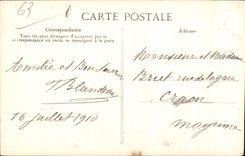 63
CARTE POSTALE
Correspondance
Tous les pays étrangers n'acceptent pas la
correspondance au recto, se renseigner à la Poste
Amitié et Bon Souvenir
Blandeau
16 juillet 1910
Monsieur et Madame
Briet rue de la gare
Craon
Mayenne